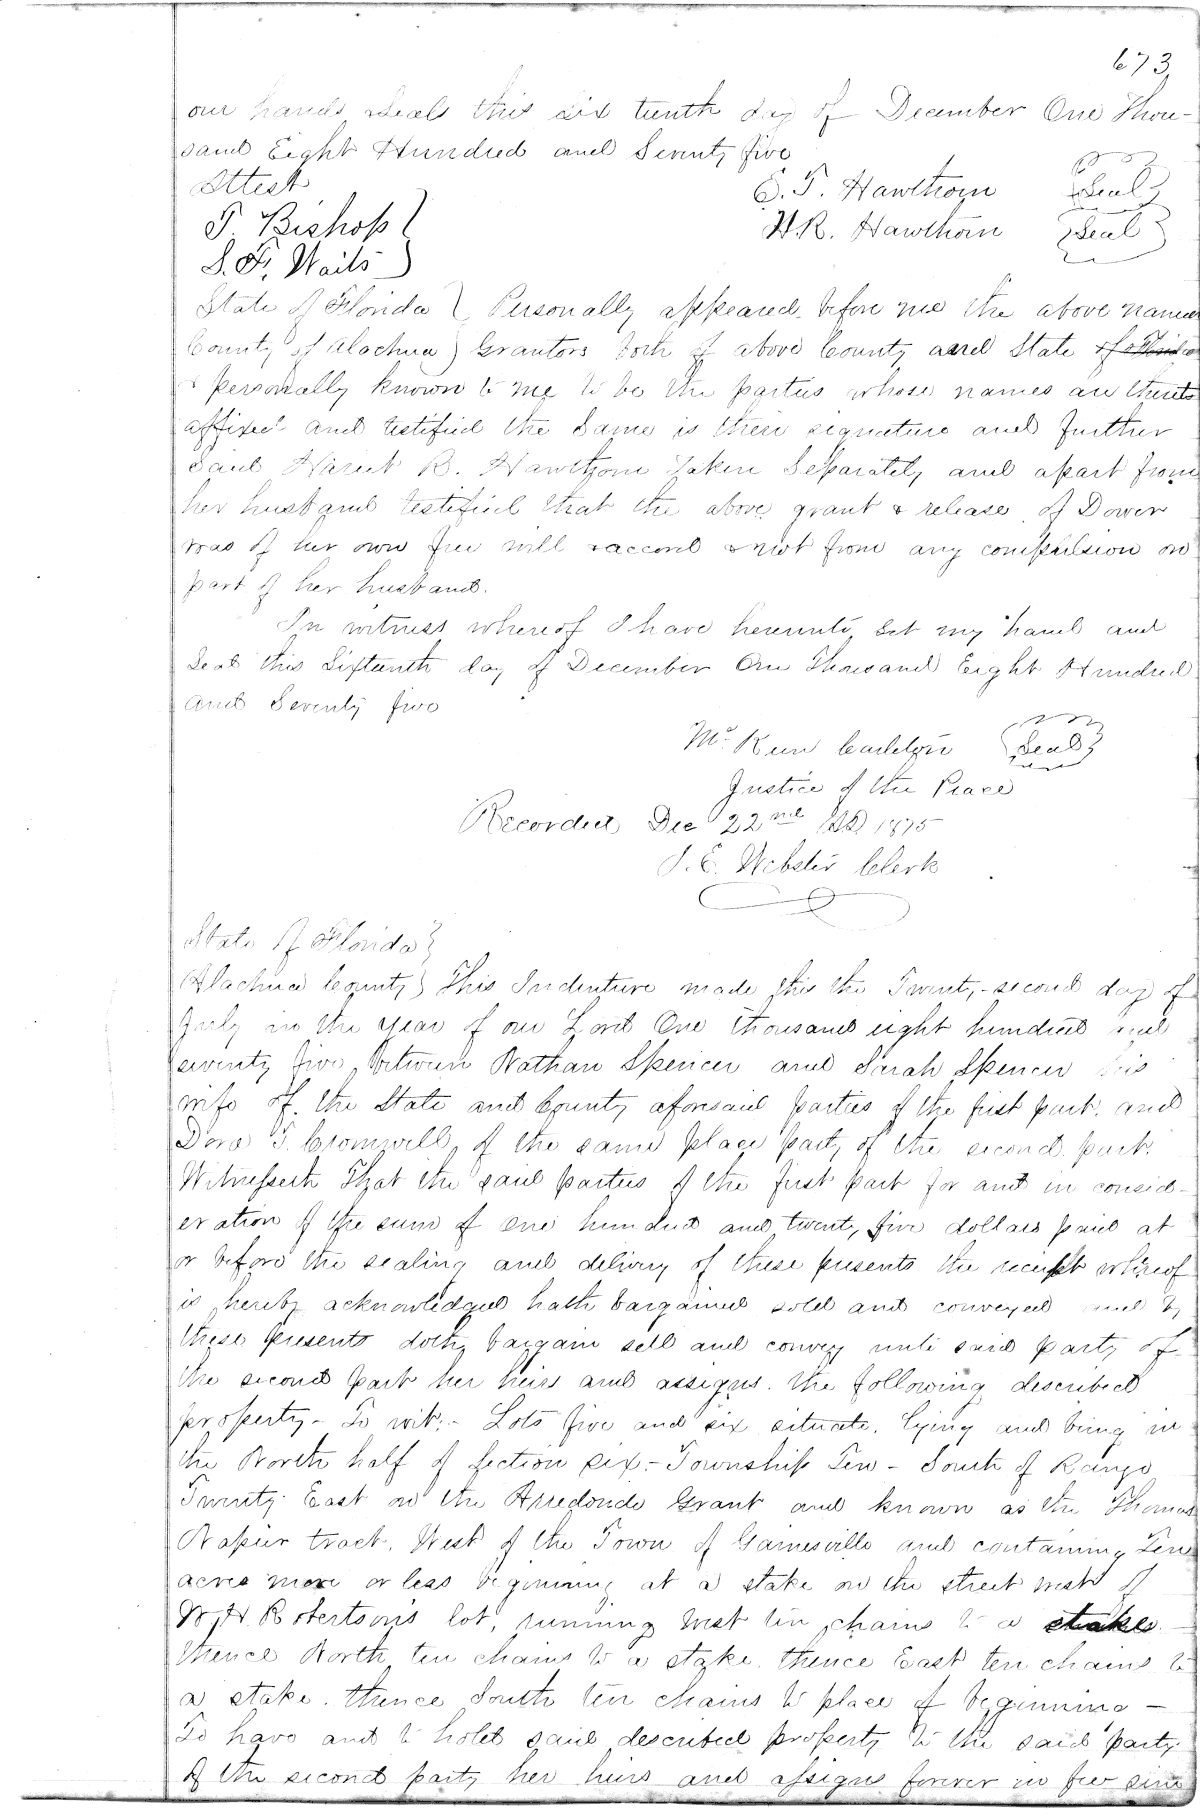 673
our hands & seals this six teenth day of December One Thou-
sand Eight Hundred and Seventy five
Attest
E. T. Hawthorn (Seal)
T. Bishop
H. R. Hawthorn (Seal)
S. F. Waits
State of Florida } Personally appeared before me the above named
County of Alachua } Grantors both of above County and State of Florida
& personally known to me to be the parties whose names are thereto
affixed and testified the Same is their signature and further
said B. Hawthorn taken Separately and apart from
her husband testified that the above grant & release of Dower
was of her own free will & accord & not from any compulsion on
part of her husband.
In witness whereof I have hereunto Set my hand and
Seal this Sixteenth day of December One Thousand Eight Hundred
and Seventy five
(Seal)
Justice of the Peace
Recorded Dec 22nd AD 1875
J. E. Webster Clerk
State of Florida }
Alachua County } This Indenture made this the Twenty-second day of
July in the year of our Lord One thousand eight hundred and
seventy five, between Nathan Spencer and Sarah Spencer his
wife of the State and County aforesaid parties of the first part, and
Dora T. Cromwell, of the same place party of the second part.
Witnesseth That the said parties of the first part for and in consid-
eration of the sum of one hundred and twenty five dollars paid at
or before the sealing and delivery of these presents the receipt whereof
is hereby acknowledged hath bargained sold and conveyed and by
these presents doth bargain sell and convey unto said party of
the second part her heirs and assigns. the following described
property - To wit:- Lots five and six situate, lying and being in
the North half of Section six - Township Ten - South of Range
Twenty East in the Arredondo Grant and known as the Thomas
Napier tract. West of the Town of Gainesville and containing Ten
acres more or less beginning at a stake on the street west of
W. H. Robertson's lot, running West ten chains to a stake
thence North ten chains to a stake. thence East ten chains to
a stake. thence South ten chains to place of beginning —
To have and to hold said described property to the said party
of the second party her heirs and assigns forever in fee sim